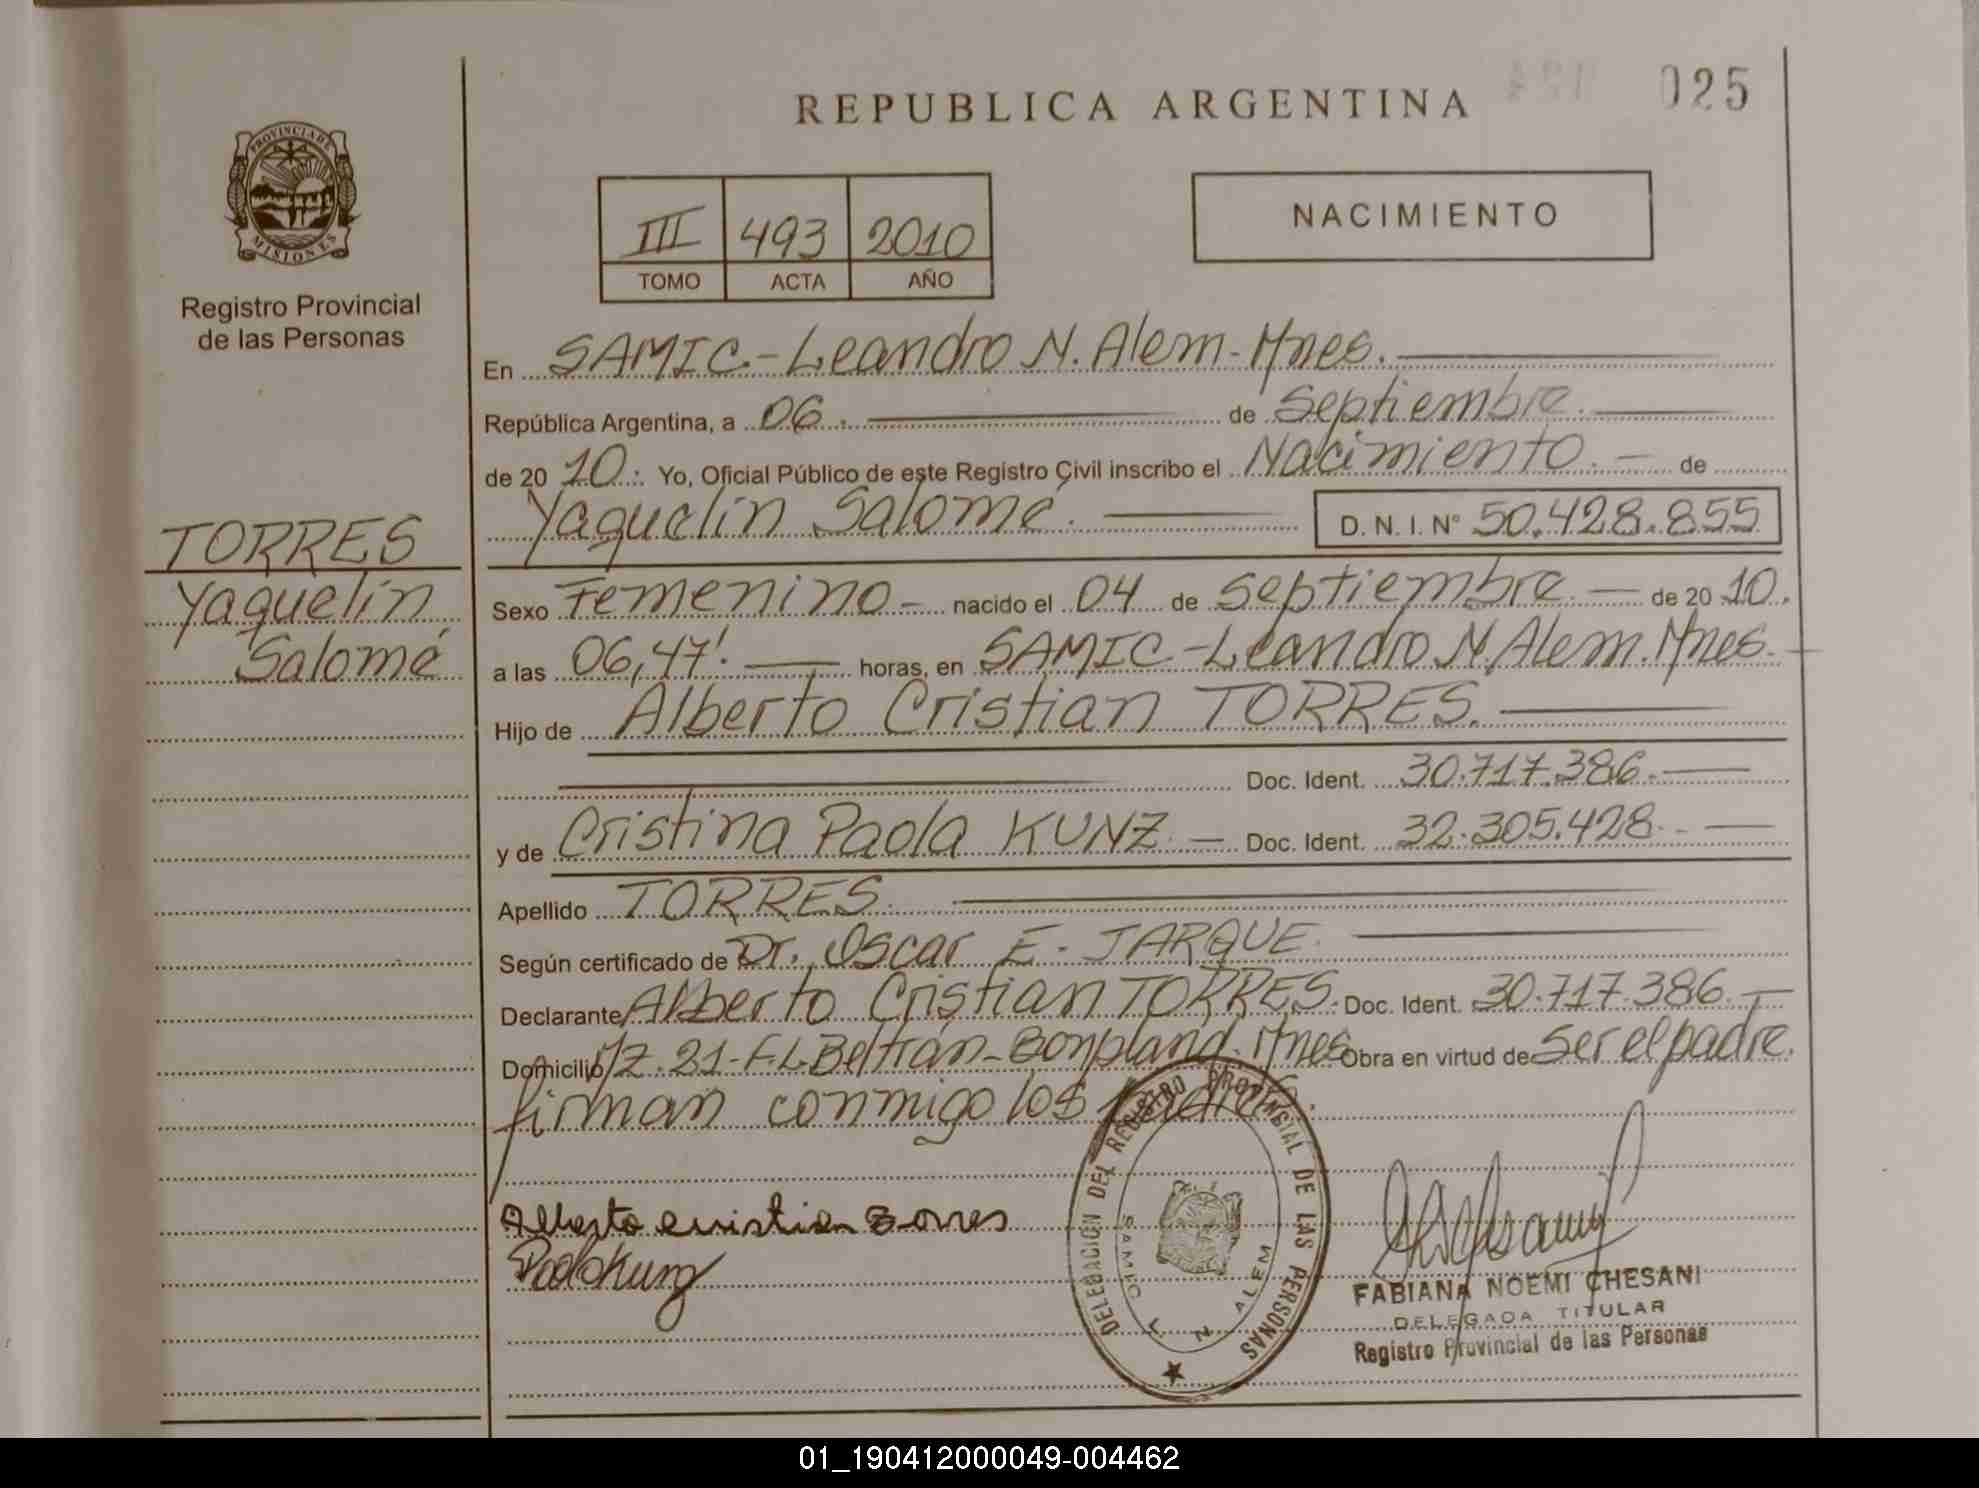 REPUBLICA ARGENTINA
025
PROVINCIA DE
MISIONES
Registro Provincial
de las Personas
III 493 2010
TOMO ACTA AÑO
NACIMIENTO
En SAMIC.-Leandro N. Alem-Mnes.
República Argentina, a 06. de Septiembre.
de 20 10. Yo, Oficial Público de este Registro Civil inscribo el Nacimiento. de
Yaquelín Salomé. D.N.I. N° 50.428.855
TORRES
Yaquelín
Salomé
Sexo Femenino - nacido el 04 de Septiembre. de 20 10.
a las 06,47'. horas, en SAMIC-Leandro N. Alem. Mnes.
Hijo de Alberto Cristian TORRES.
Doc. Ident. 30.717.386.
y de Cristina Paola KUNZ. Doc. Ident. 32.305.428.
Apellido TORRES.
Según certificado de Dr. Oscar E. JARQUE.
Declarante Alberto Cristian TORRES. Doc. Ident. 30.717.386.
Domicilio Mz.21-F.L.Beltrán-Bonpland. Mnes Obra en virtud de Ser el padre.
firman conmigo los Padres.
Alberto cristian Torres
Paola Kunz
DELEGACIÓN DEL REGISTRO PROVINCIAL DE LAS PERSONAS
SAMIC L N ALEM
FABIANA NOEMI CHESANI
DELEGADA TITULAR
Registro Provincial de las Personas
01_190412000049-004462